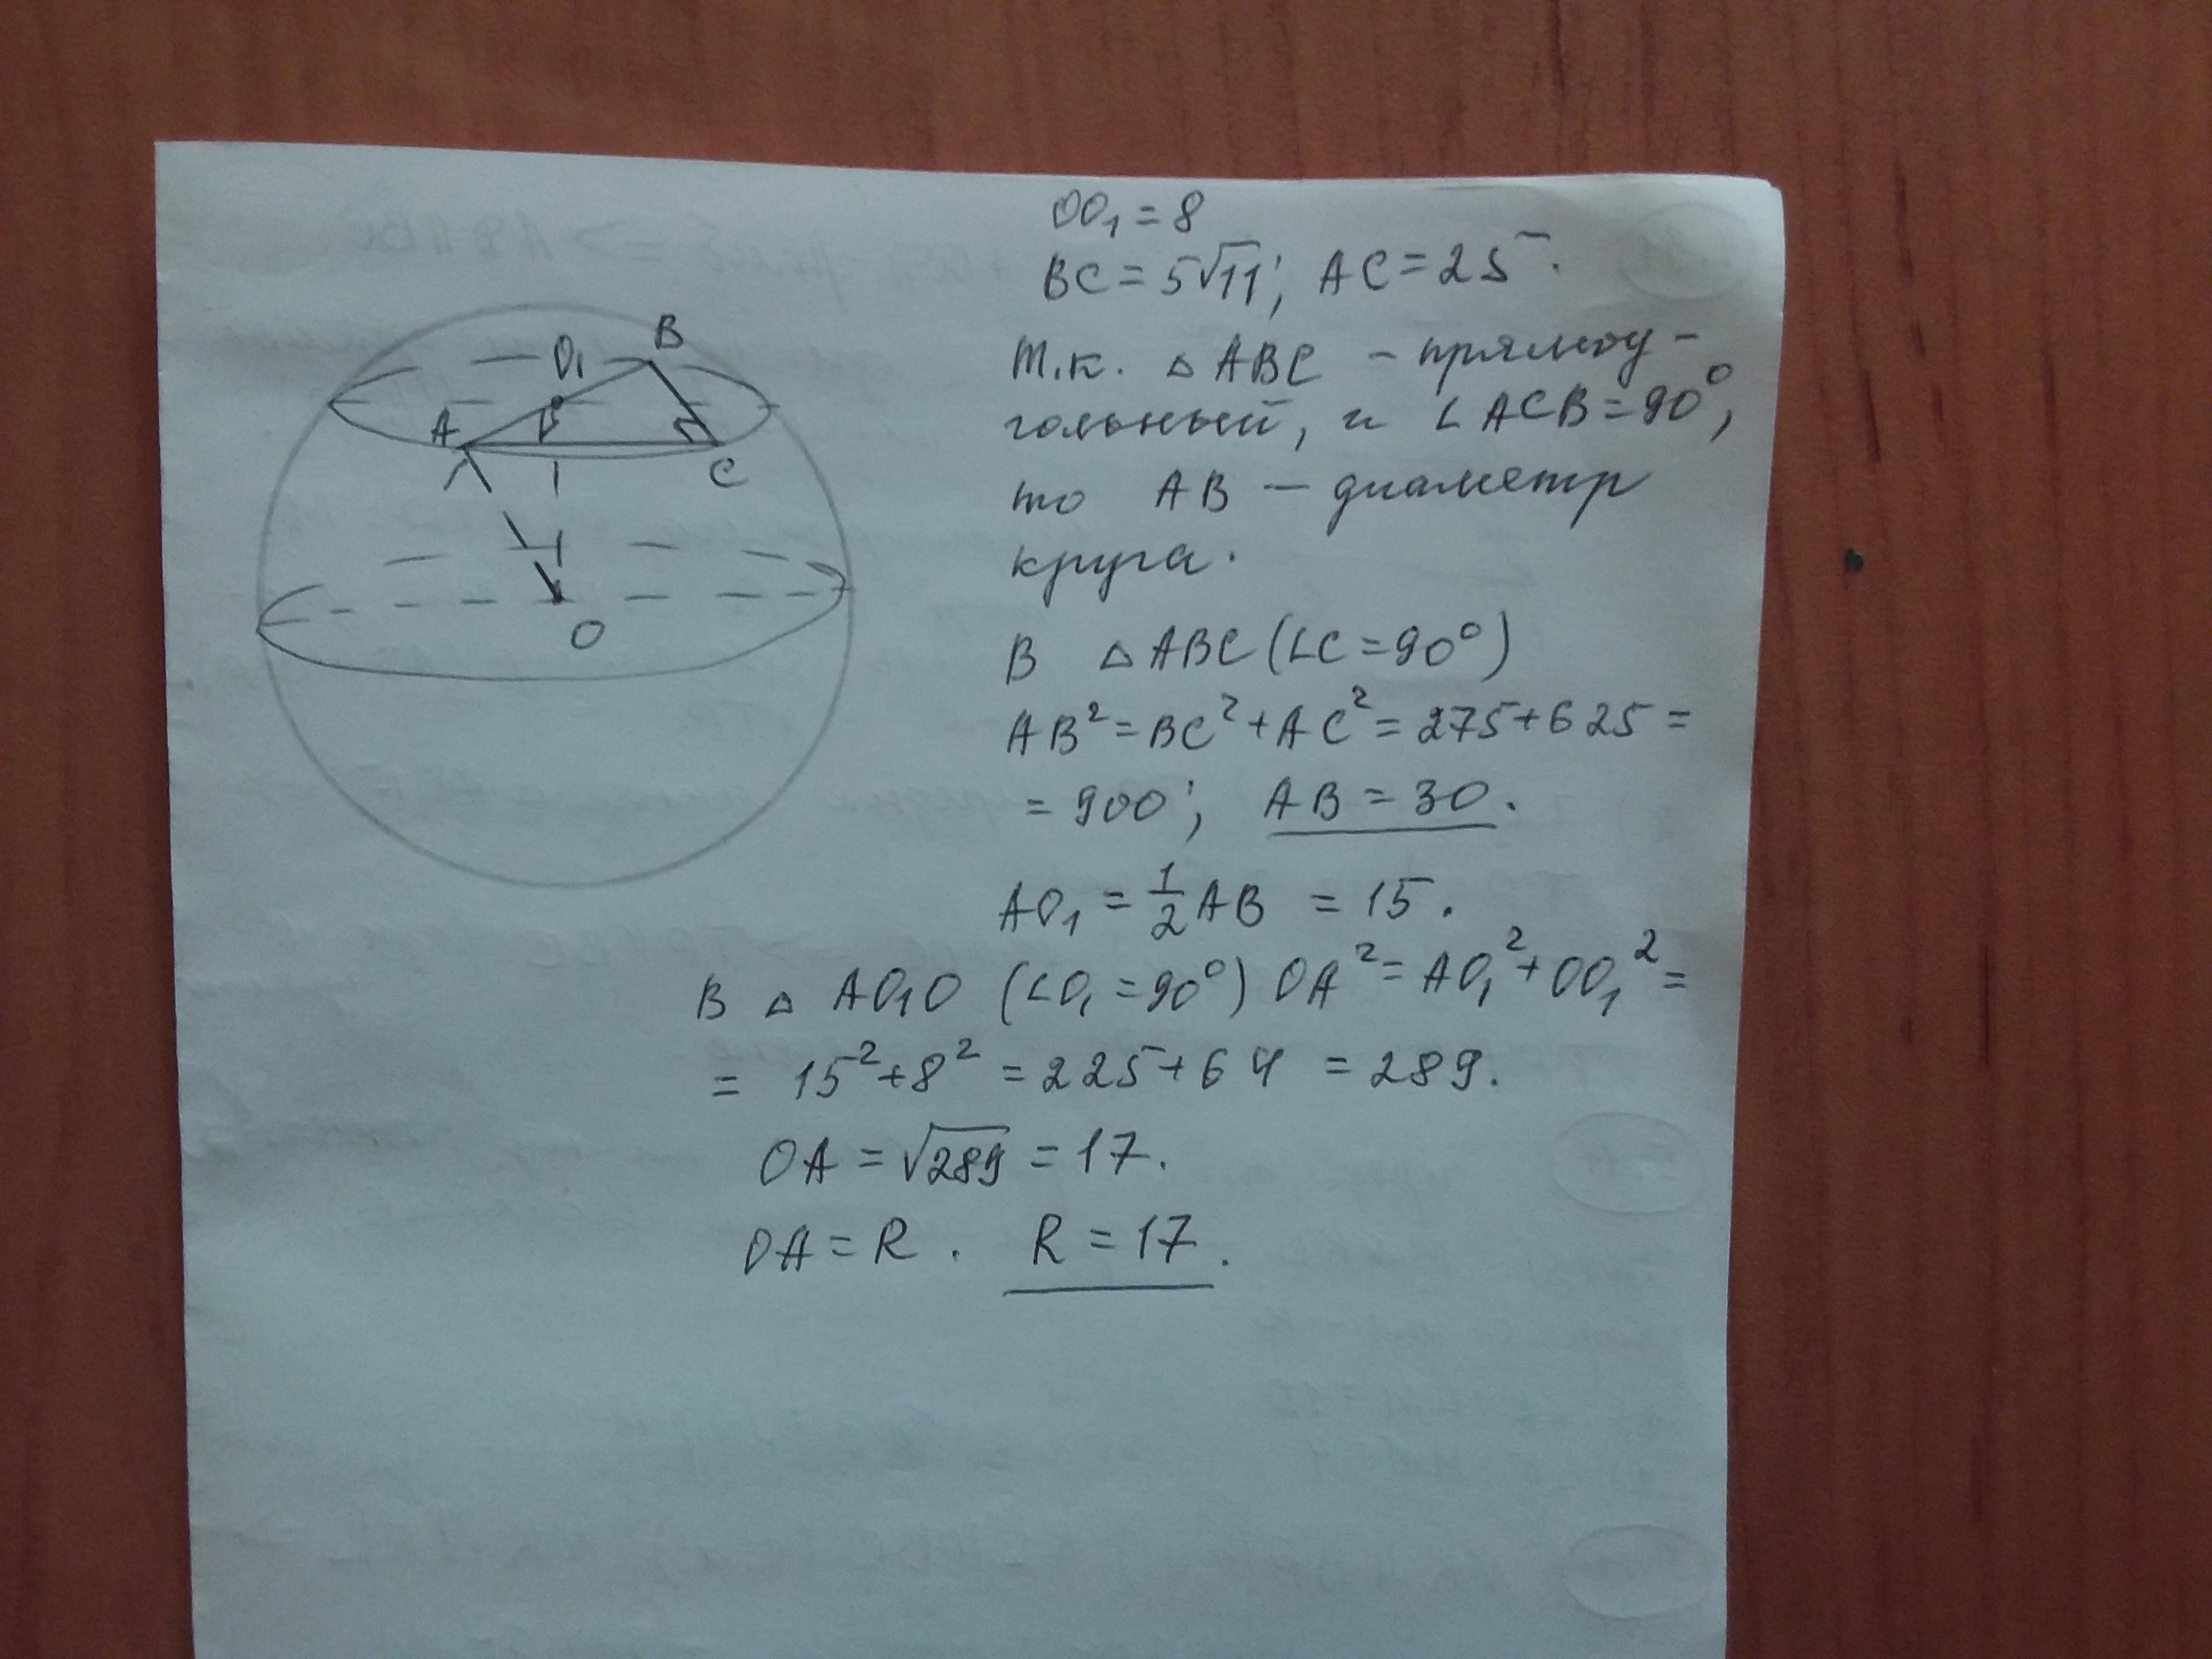 OO₁ = 8
BC = 5√11; AC = 25.
т.к. △ ABC - прямоу-
гольный, и ∠ ACB = 90°,
то AB — диаметр
круга.
В △ABC (∠C = 90°)
AB² = BC² + AC² = 275 + 625 =
= 900; AB = 30.
AO₁ = 1/2 AB = 15.
В △ AO₁O (∠O₁ = 90°) OA² = AO₁² + OO₁² =
= 15² + 8² = 225 + 64 = 289.
OA = √289 = 17.
OA = R. R = 17.
O₁
B
A
C
O